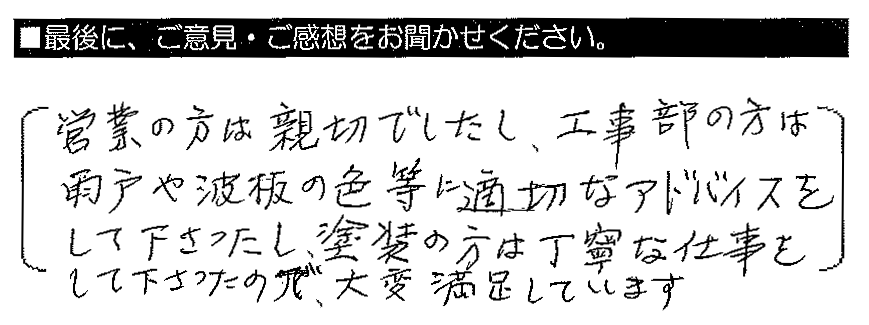 ■最後に、ご意見・ご感想をお聞かせください。
営業の方は親切でしたし、工事部の方は
雨戸や波板の色等に適切なアドバイスを
して下さったし、塗装の方は丁寧な仕事を
して下さったので、大変満足しています